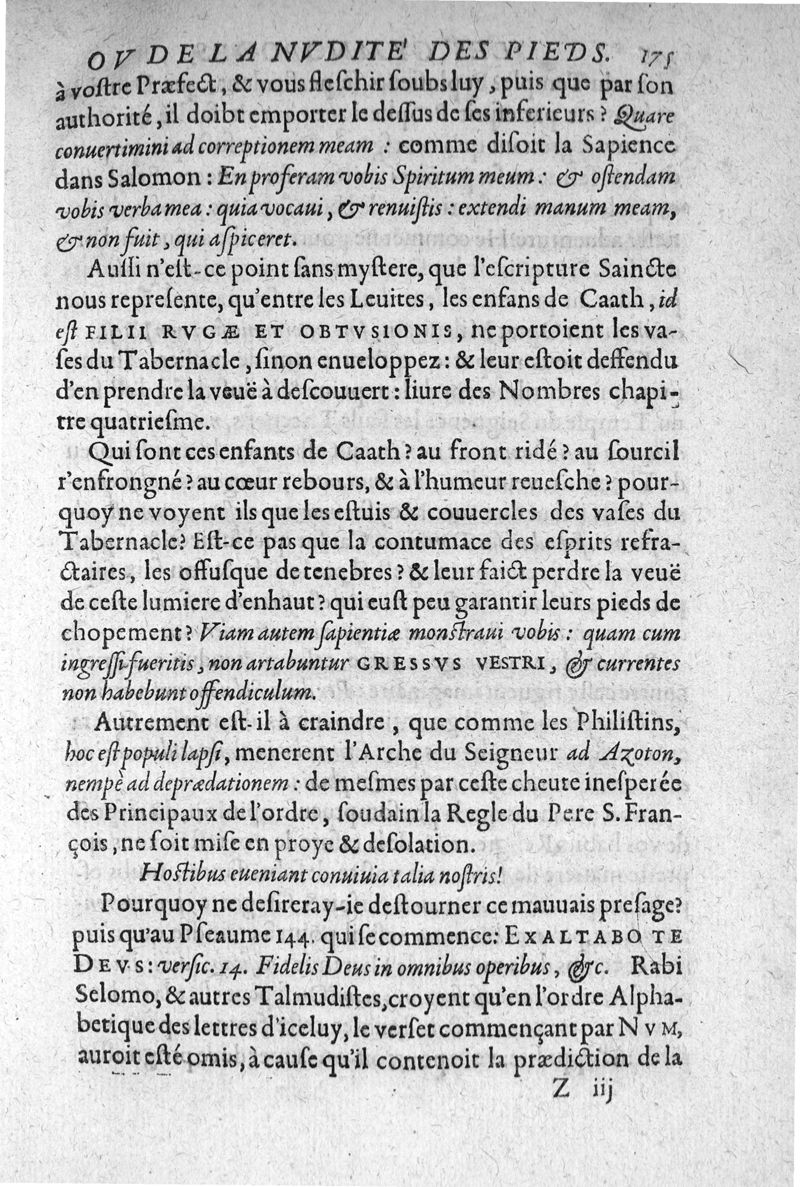 OV DE LA NVDITE' DES PIEDS. 175
à vostre Præfect, & vous fleschir soubs luy, puis que par son
authorité, il doibt emporter le dessus de ses inferieurs? Quare
conuertimini ad correptionem meam : comme disoit la Sapience
dans Salomon : En proferam vobis Spiritum meum : & ostendam
vobis verba mea : quia vocaui, & renuistis : extendi manum meam,
& non fuit, qui aspiceret.
Aussi n'est-ce point sans mystere, que l'escripture Saincte
nous represente, qu'entre les Leuites, les enfans de Caath, id
est FILII RVGÆ ET OBTVSIONIS, ne portoient les va-
ses du Tabernacle, sinon enueloppez : & leur estoit deffendu
d'en prendre la veuë à descouuert : liure des Nombres chapi-
tre quatriesme.
Qui sont ces enfants de Caath? au front ridé? au sourcil
r'enfrongné? au cœur rebours, & à l'humeur reuesche? pour-
quoy ne voyent ils que les estuis & couuercles des vases du
Tabernacle? Est-ce pas que la contumace des esprits refra-
ctaires, les offusque de tenebres? & leur faict perdre la veuë
de ceste lumiere d'enhaut? qui eust peu garantir leurs pieds de
chopement? Viam autem sapientiæ monstraui vobis : quam cum
ingressi fueritis, non artabuntur GRESSVS VESTRI, & currentes
non habebunt offendiculum.
Autrement est-il à craindre, que comme les Philistins,
hoc est populi lapsi, menerent l'Arche du Seigneur ad Azoton,
nempè ad deprædationem : de mesmes par ceste cheute inesperée
des Principaux de l'ordre, soudain la Regle du Pere S. Fran-
çois, ne soit mise en proye & desolation.
Hostibus eueniant conuiuia talia nostris!
Pourquoy ne desireray-ie destourner ce mauuais presage?
puis qu'au Pseaume 144. qui se commence: EXALTABO TE
DEVS : versic. 14. Fidelis Deus in omnibus operibus, &c. Rabi
Selomo, & autres Talmudistes, croyent qu'en l'ordre Alpha-
betique des lettres d'iceluy, le verset commençant par NVM,
auroit esté omis, à cause qu'il contenoit la prædiction de la
Z iij